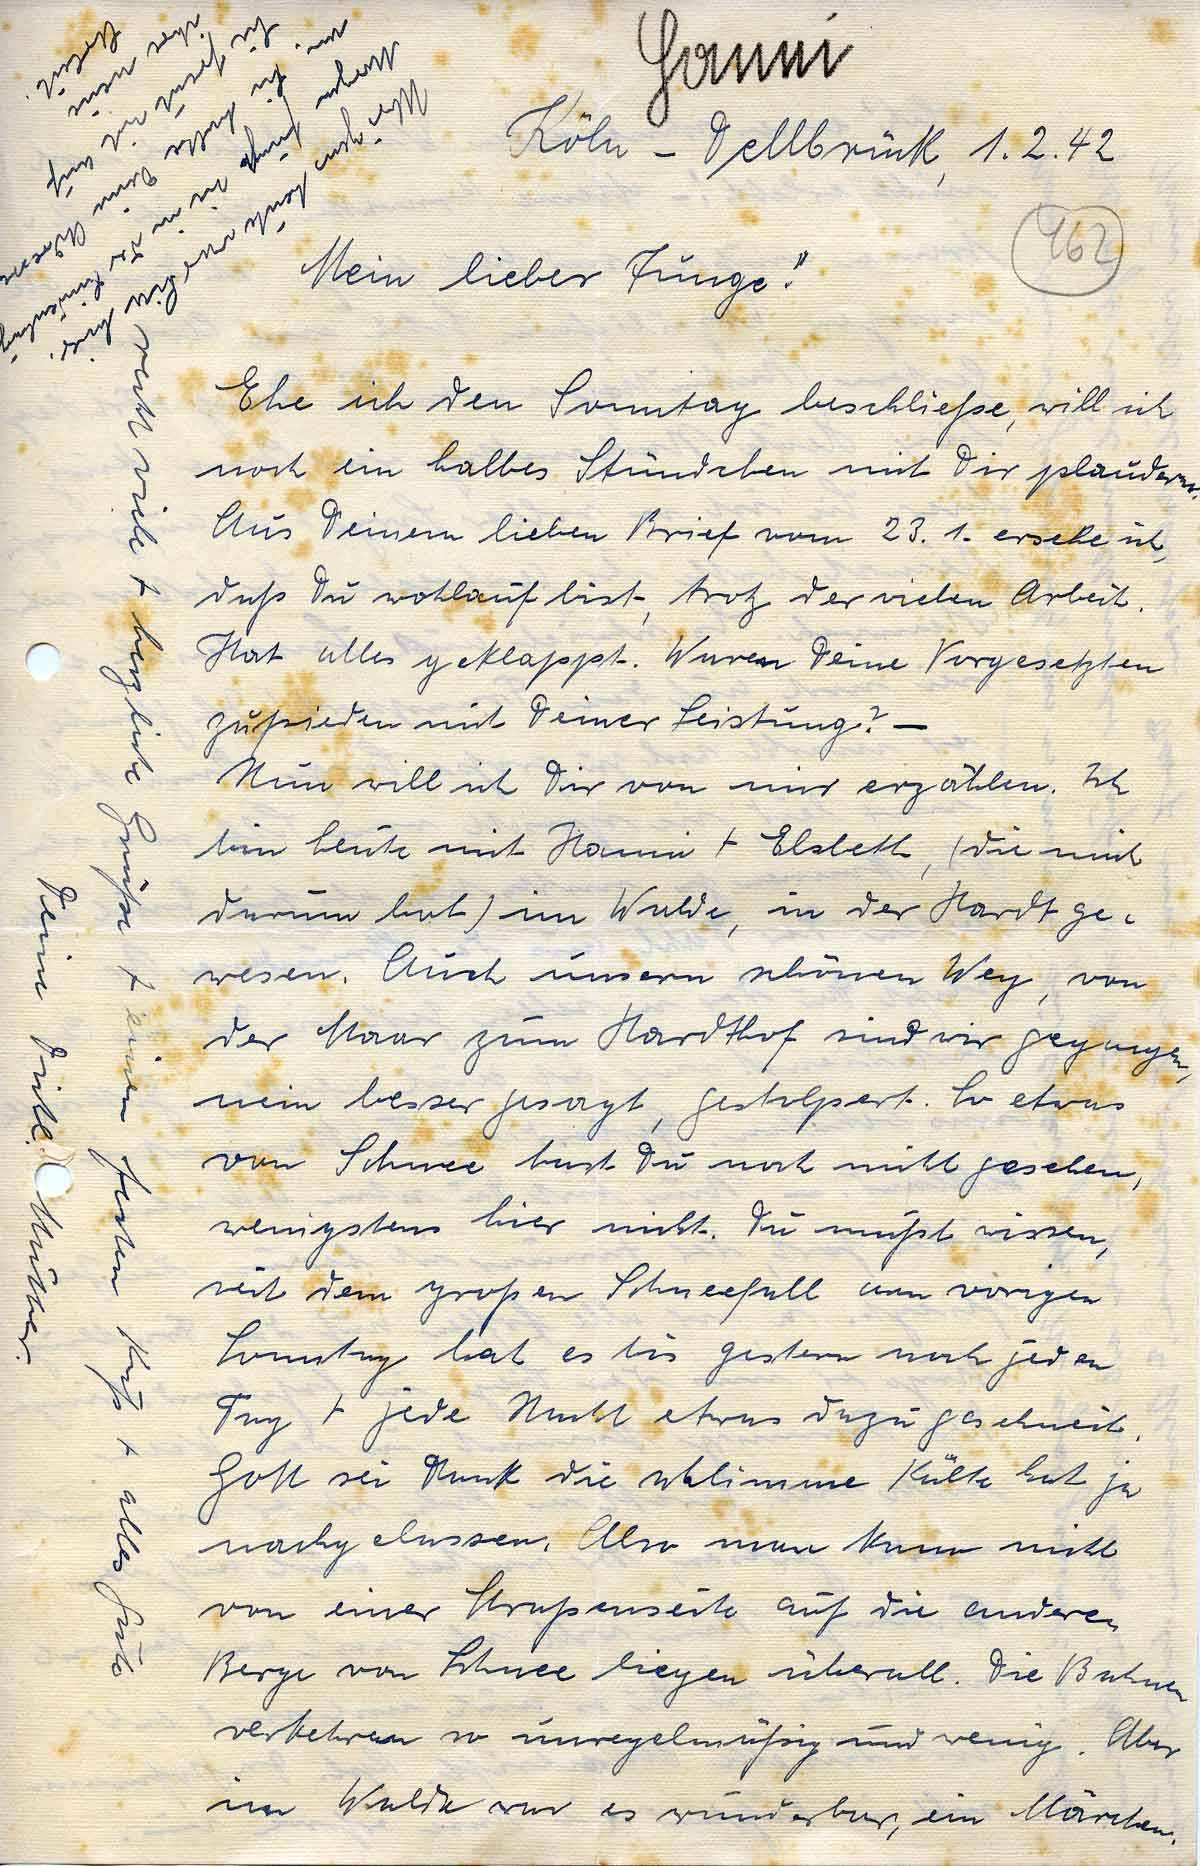 Hanni
Köln - Dellbrück, 1.2.42
462
Mein lieber Junge!"
Ehe ich den Sonntag beschließe, will ich
noch ein halbes Stündchen mit Dir plaudern.
Aus Deinem lieben Brief vom 23. 1. ersehe ich,
daß Du wohlauf bist, trotz der vielen Arbeit.
Hat alles geklappt. Waren Deine Vorgesetzten
zufrieden mit Deiner Leistung? —
Nun will ich Dir von mir erzählen. Ich
bin heute mit Hanni + Elsbeth, (die mich
darum bat) im Walde, in der Hardt ge-
wesen. Auch unsern schönen Weg, von
der Maar zum Hardthof sind wir gegangen,
nein besser gesagt, gestolpert. So etwas
von Schnee hast Du noch nicht gesehen,
wenigstens hier nicht. Du mußt wissen,
seit dem großen Schneefall am vorigen
Sonntag hat es bis gestern noch jeden
Tag + jede Nacht etwas dazu geschneit.
Gott sei Dank die schlimme Kälte hat ja
nachgelassen. Also man kann nicht
von einer Straßenseite auf die andere,
Berge von Schnee liegen überall. Die Bahnen
verkehren so unregelmäßig und wenig. Aber
im Walde war es wunderbar, ein Märchen.
recht viele + herzliche Grüße + einen festen Kuß + alles Gute
Deine Mutter.